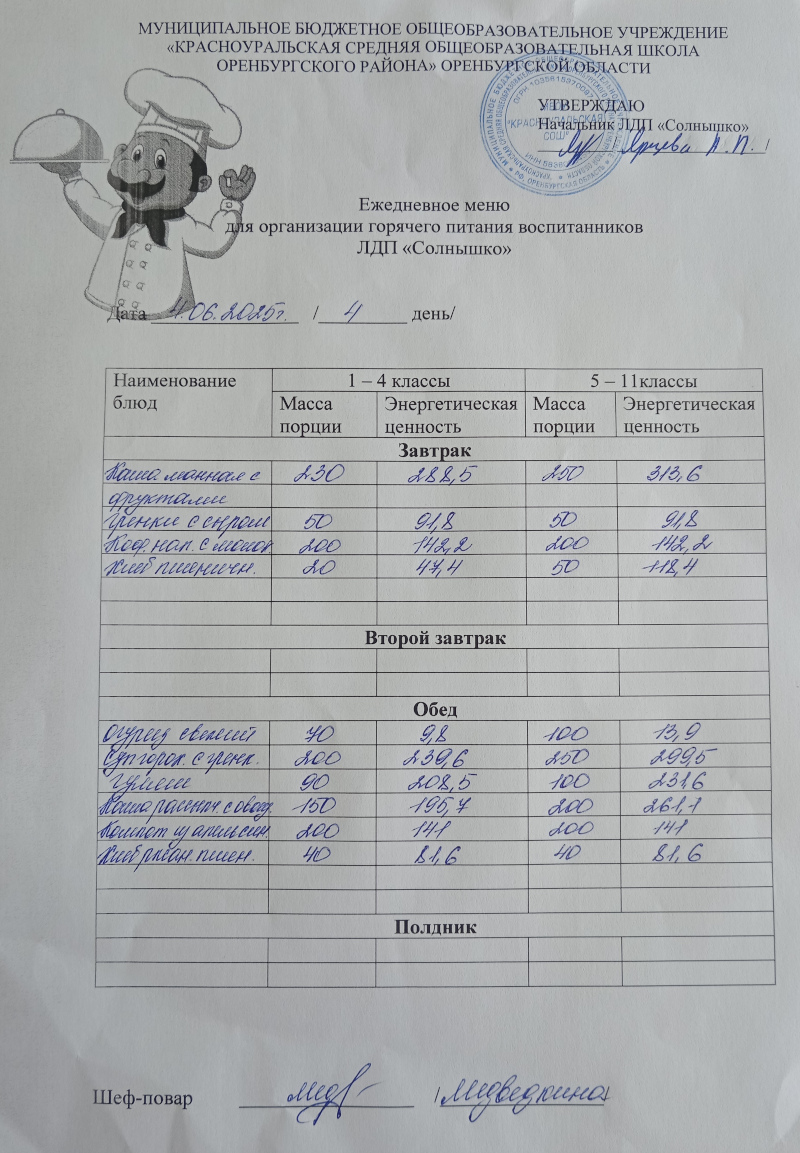 МУНИЦИПАЛЬНОЕ БЮДЖЕТНОЕ ОБЩЕОБРАЗОВАТЕЛЬНОЕ УЧРЕЖДЕНИЕ
«КРАСНОУРАЛЬСКАЯ СРЕДНЯЯ ОБЩЕОБРАЗОВАТЕЛЬНАЯ ШКОЛА
ОРЕНБУРГСКОГО РАЙОНА» ОРЕНБУРГСКОЙ ОБЛАСТИ
УТВЕРЖДАЮ
Начальник ЛДП «Солнышко»
"КРАСНОУРАЛЬСКАЯ
СОШ"
Ярцева Л.П. /
Ежедневное меню
для организации горячего питания воспитанников
ЛДП «Солнышко»
Дата 4.06.2025г. / 4 день/
Наименование блюд 1 – 4 классы 5 – 11классы
Масса порции Энергетическая ценность Масса порции Энергетическая ценность
Завтрак
Каша манная с 230 288,5 250 313,6
фруктами
Гренки с сыром 50 91,8 50 91,8
Коф. нап. с молок 200 142,2 200 142,2
Хлеб пшеничн. 20 47,4 50 118,4
Второй завтрак
Обед
Огурец свежий 70 9,8 100 13,9
Суп горох. с гренк. 200 239,6 250 299,5
Гуляш 90 208,5 100 231,6
Каша рассып. с овощ. 150 195,7 200 261,1
Компот из апельсин. 200 141 200 141
Хлеб ржан. пшен. 40 81,6 40 81,6
Полдник
Шеф-повар /Медведкина/